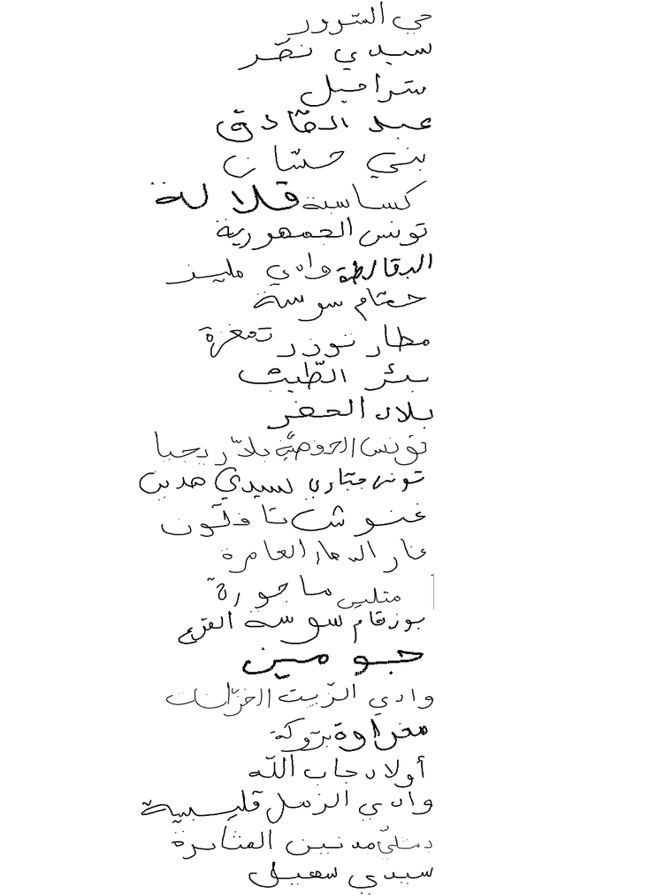 حي السّرور
سيدي نصر
شراحيل
عبد الصّادق
بني حسّان
كساسبة قلالة
تونس الجمهورية
البقالطة وادي مليز
حمّام سوسة
مطار توزر تمغزة
بئر الطّيّب
بلاد الحضر
تونس الحفصيّة بلاّريجيا
تونس سيدي مدين
غنوش تافلّون
غار الدماء العامرة
مثليين ماجورة
بوزقام سوسة القرع
جومين
وادي الزّيت الخزّانات
مغراوة برّوكة
أولاد جاب اللّه
وادي الرّمل قليبية
مدنين الفتايرة
سيدي سهيل